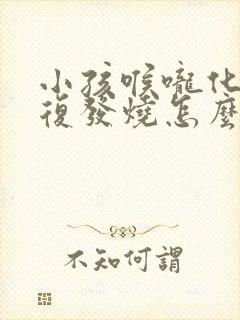 小孩喉嚨化
復發燒怎麼
不知何謂